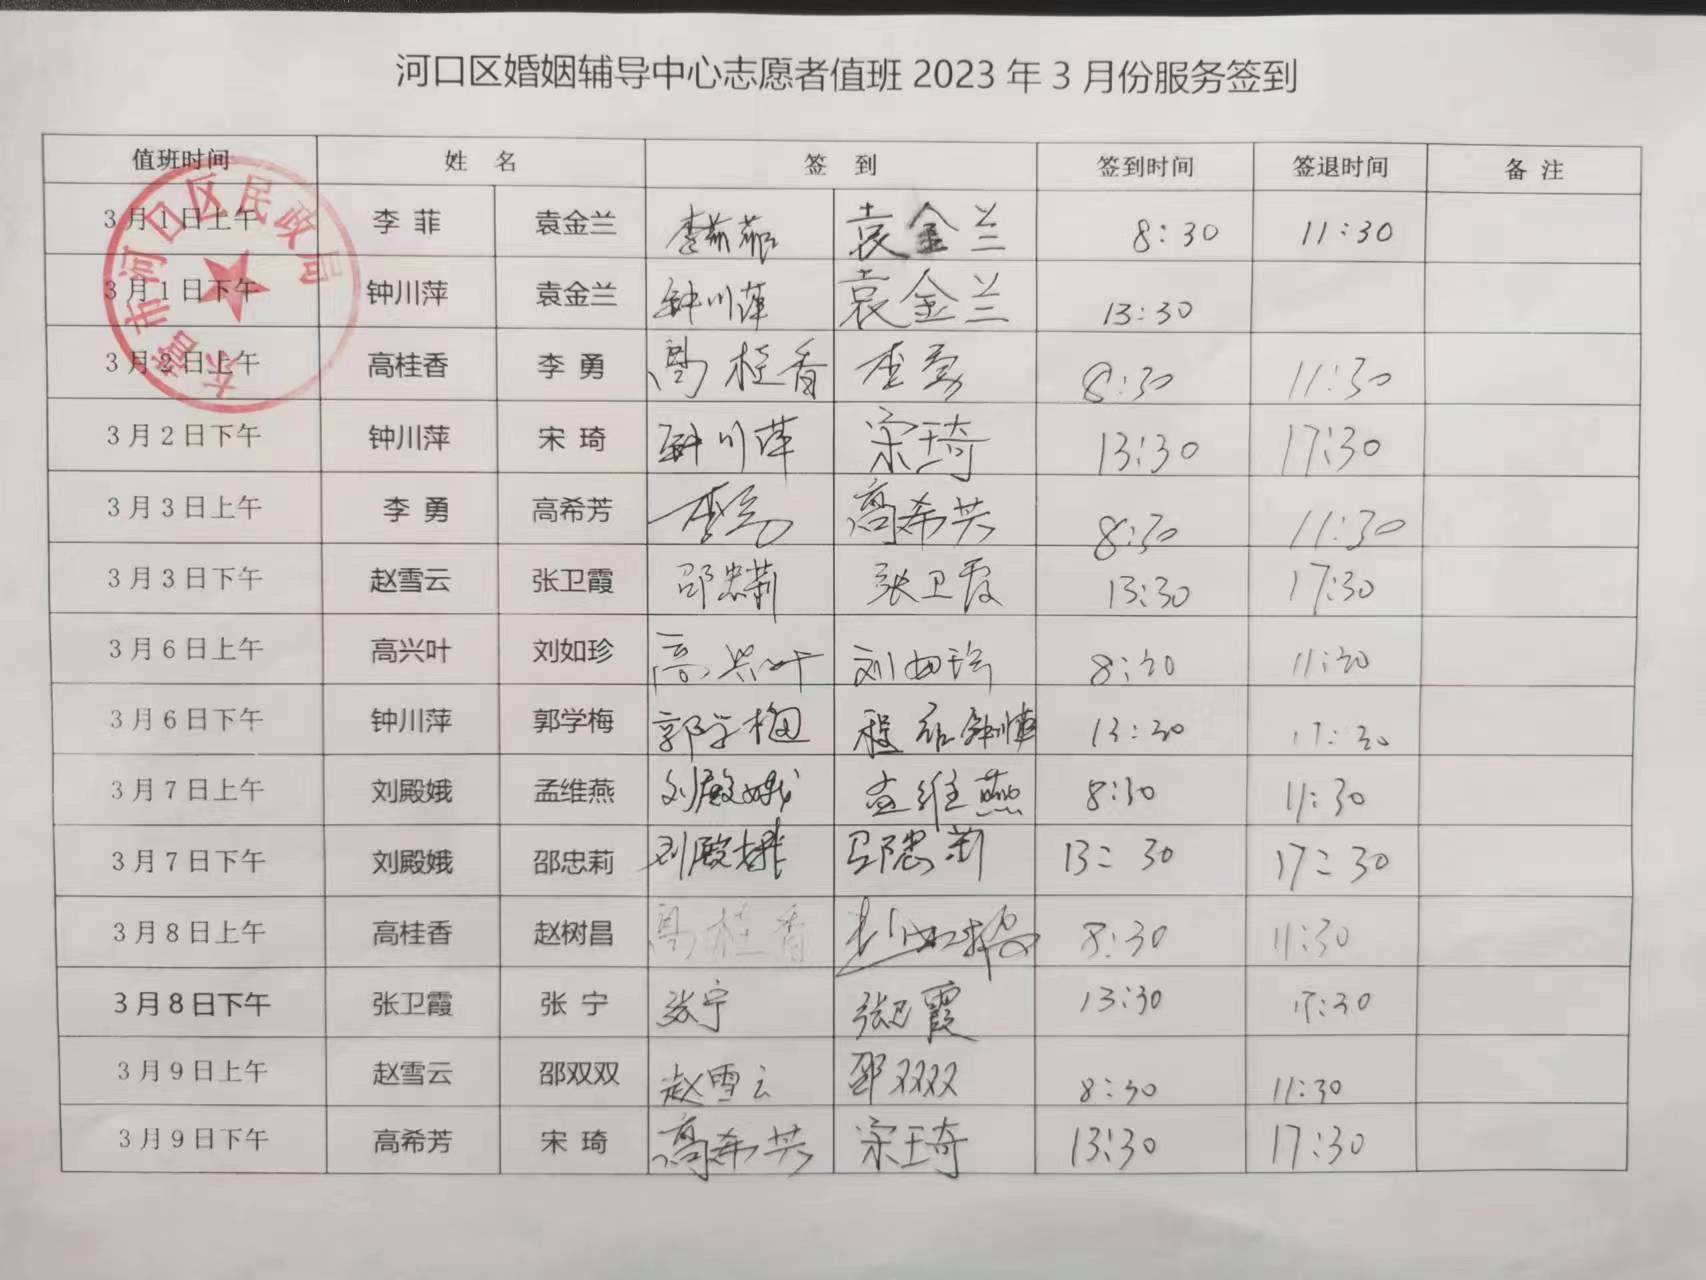 河口区婚姻辅导中心志愿者值班 2023 年 3 月份服务签到
值班时间 姓 名 签 到 签到时间 签退时间 备 注
3月1日上午 李 菲 袁金兰 袁金兰 8:30 11:30
3月1日下午 钟川萍 袁金兰 钟川萍 袁金兰 13:30
3月2日上午 高桂香 李 勇 高桂香 李勇 8:30 11:30
3月2日下午 钟川萍 宋 琦 钟川萍 宋琦 13:30 17:30
3月3日上午 李 勇 高希芳 李勇 高希芳 8:30 11:30
3月3日下午 赵雪云 张卫霞 邵忠莉 张卫霞 13:30 17:30
3月6日上午 高兴叶 刘如珍 高兴叶 刘如珍 8:30 11:30
3月6日下午 钟川萍 郭学梅 郭学梅 钟川萍 13:30 17:30
3月7日上午 刘殿娥 孟维燕 刘殿娥 孟维燕 8:30 11:30
3月7日下午 刘殿娥 邵忠莉 刘殿娥 邵忠莉 13:30 17:30
3月8日上午 高桂香 赵树昌 高桂香 8:30 11:30
3月8日下午 张卫霞 张 宁 张宁 张卫霞 13:30 17:30
3月9日上午 赵雪云 邵双双 赵雪云 邵双双 8:30 11:30
3月9日下午 高希芳 宋 琦 高希芳 宋琦 13:30 17:30
东营市河口区民政局